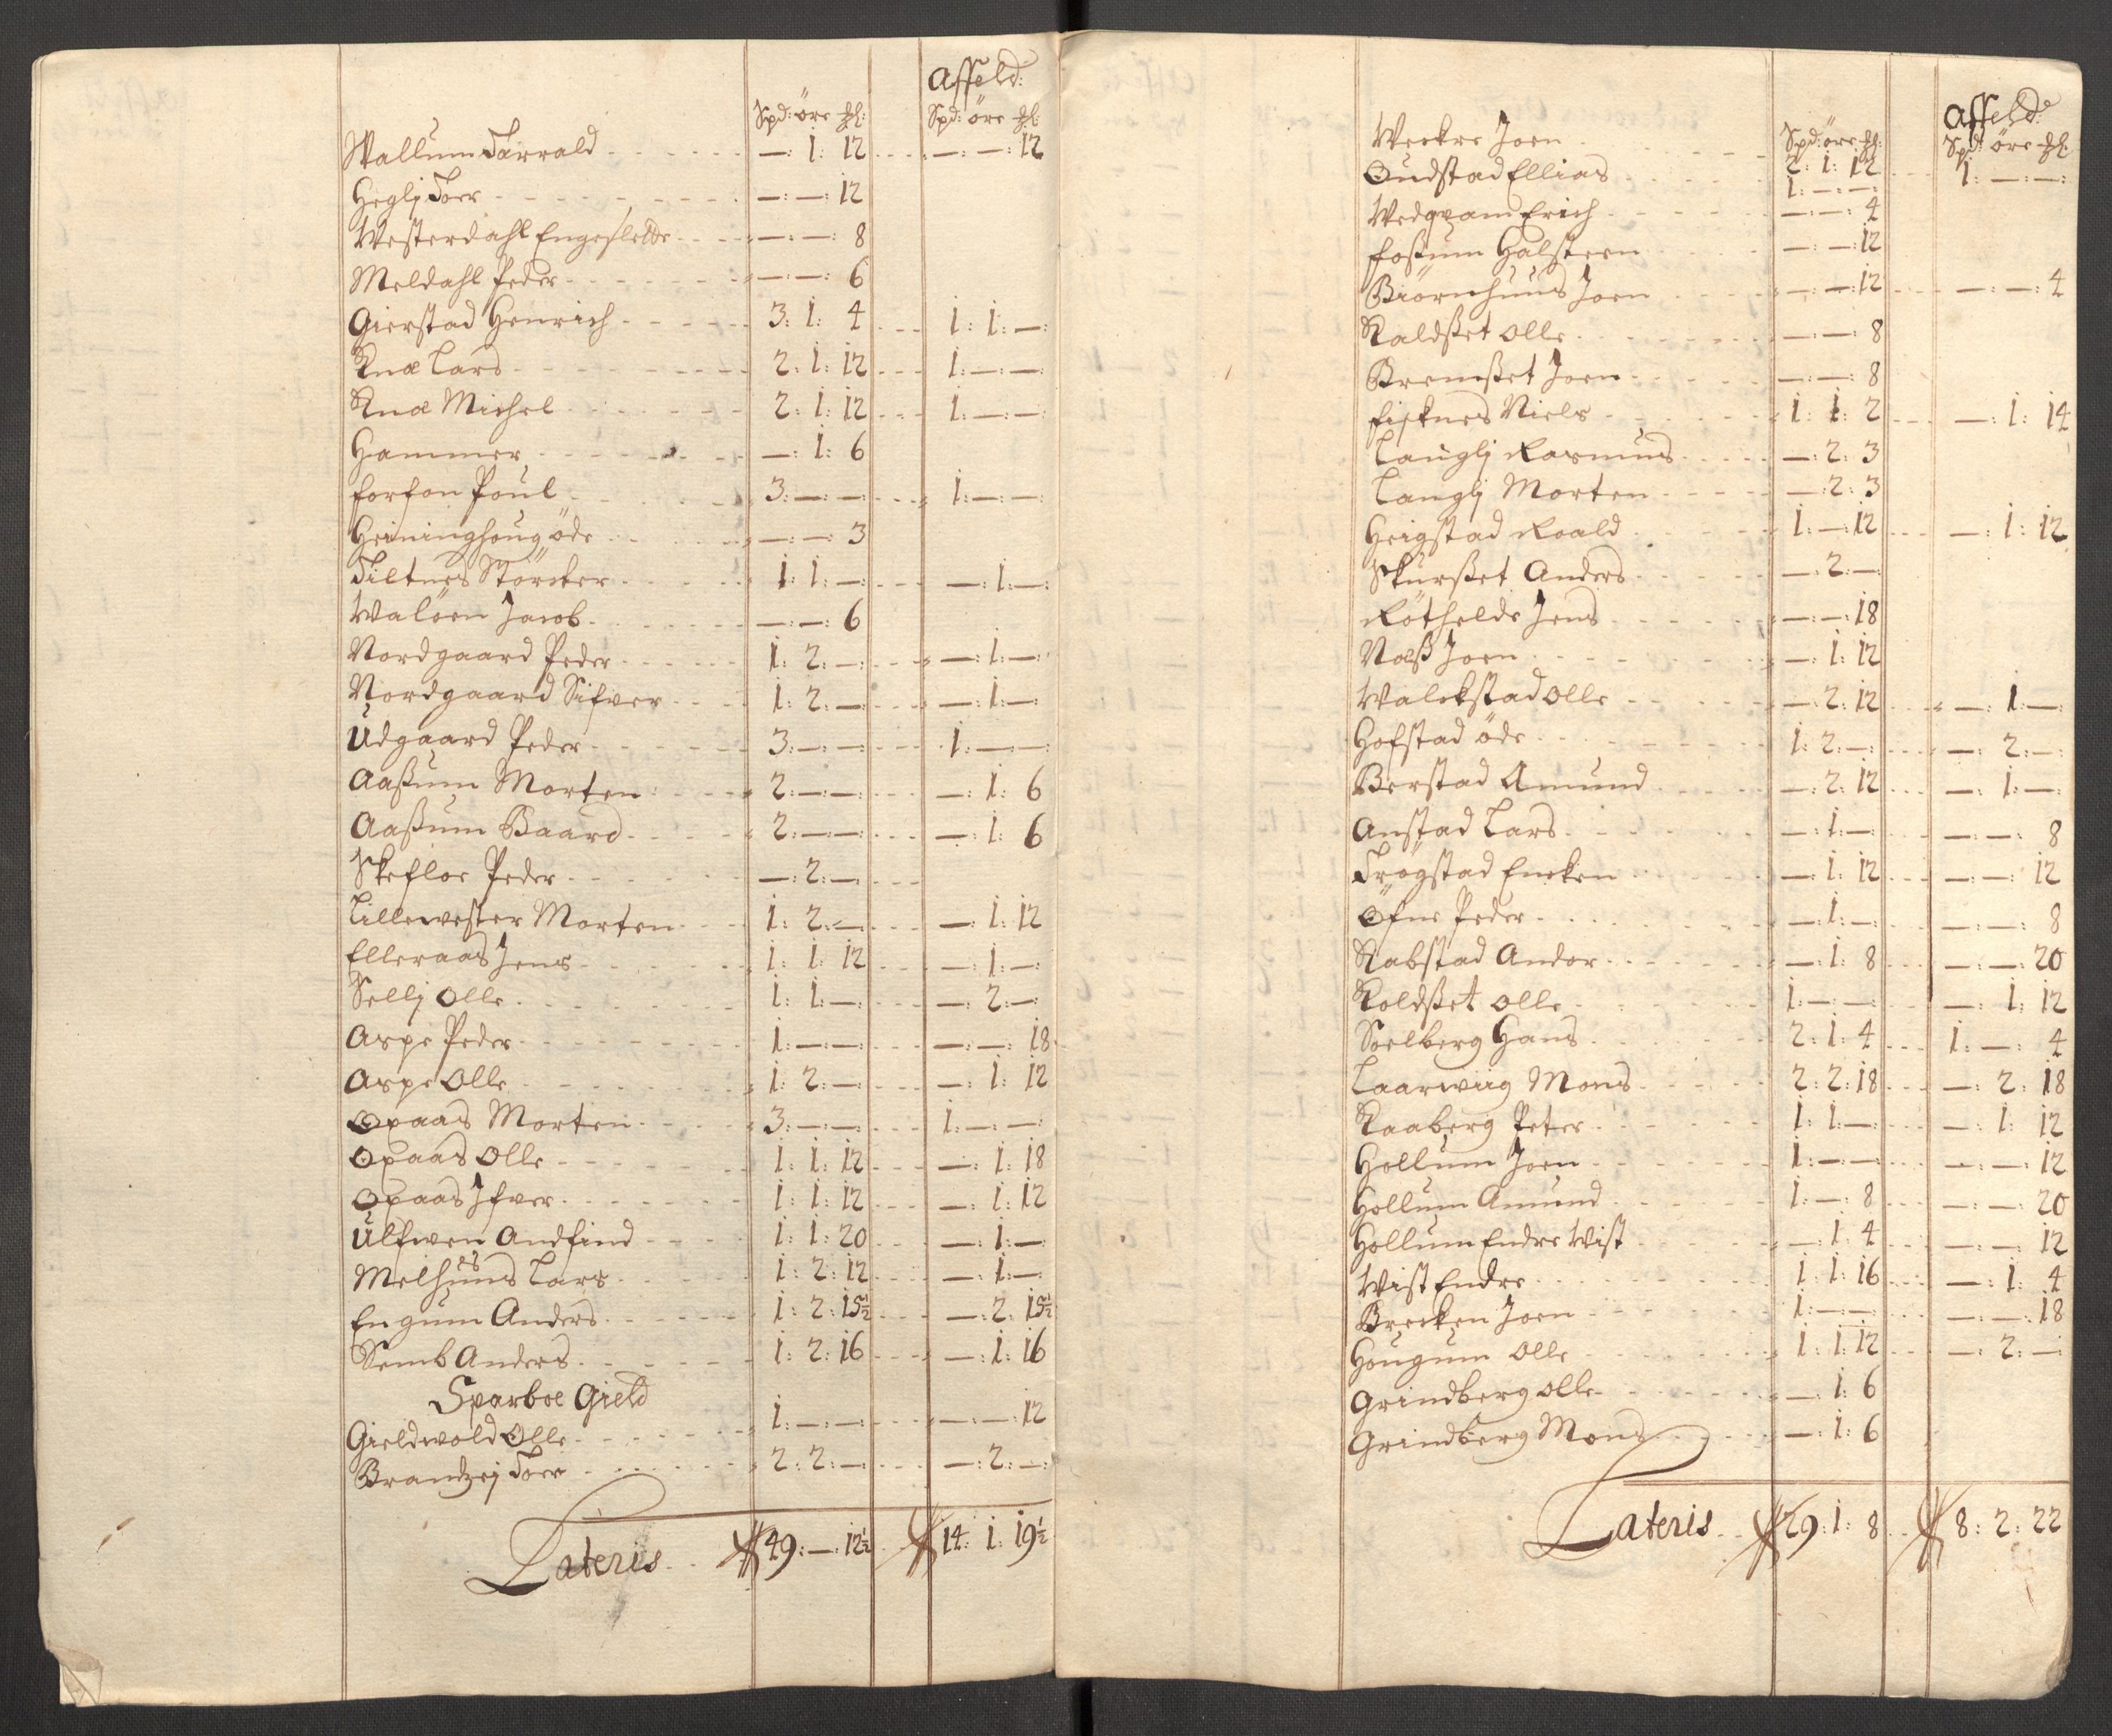 Affeld:
Spd: öre ₰: Spd: öre ₰:
Wallum Tarrald — : 1 : 12 — : — : 12
Heglj Toer — : — : 12
Westerdahl Engeslette — : — : 8
Meldahl Peder — : — : 6
Gierstad Henrich 3 : 1 : 4 1 : 1 : —
Knæ Lars 2 : 1 : 12 1 : — : —
Knæ Michel 2 : 1 : 12 1 : — : —
Hammer — : 1 : 6
forfon Poul 3 : — : — 1 : — : —
Heininghoug öde — : — : 3
Tiltnes Störcker 1 : 1 : — — : 1 : —
Walöen Jacob — : — : 6
Nordgaard Peder 1 : 2 : — — : 1 : —
Nordgaard Sifver 1 : 2 : — — : 1 : —
Udgaard Peder 3 : — : — 1 : — : —
Aaßum Morten 2 : — : — — : 1 : 6
Aaßum Baard 2 : — : — — : 1 : 6
Skefloe Peder — : 2 : —
Lillewester Morten 1 : 2 : — — : 1 : 12
Elleraas Jens 1 : 1 : 12 — : 1 : —
Sellj Olle 1 : 1 : — — : 2 : —
Aspe Peder 1 : — : — — : — : 18
Aspe Olle 1 : 2 : — — : 1 : 12
Opaas Morten 3 : — : — 1 : — : —
Opaas Olle 1 : 1 : 12 — : 1 : 18
Opaas Ifver 1 : 1 : 12 — : 1 : 12
Ulfwen Andfind 1 : 1 : 20 — : 1 : —
Melhuus Lars 1 : 2 : 12 — : 1 : —
Engum Anders 1 : 2 : 15½ — : 2 : 15½
Semb Anders 1 : 2 : 16 — : 1 : 16
Sparboe Gield
Gieldwold Olle 1 : — : — — : — : 12
Brandzej Toer 2 : 2 : — — : 2 : —
Lateris 49 : — : 12½ 14 : 1 : 19½
Affeld:
Spd: öre ₰: Spd: öre ₰:
Weekre Joen 2 : 1 : 12 1 : — : —
Oudstad Ellias 1 : — : —
Wedqvam Erich — : — : 4
foßum Halsteen — : — : 12
Biörnhuus Joen — : — : 12 — : — : 4
Kaldßet Olle — : — : 8
Bremßet Joen — : — : 8
fisknes Niels 1 : 1 : 2 — : 1 : 14
Langlj Rasmus — : 2 : 3
Langlj Morten — : 2 : 3
Heigstad Roald 1 : — : 12 — : 1 : 12
Skurßet Anders — : 2 : —
Röthelde Jens — : — : 18
Næß Joen — : 1 : 12
Walekstad Olle — : 2 : 12 — : 1 : —
Hofstad öde 1 : 2 : — — : 2 : —
Berstad Amund — : 2 : 12 — : 1 : —
Anstad Lars — : 1 : — — : — : 8
Trögstad Encken — : 1 : 12 — : — : 12
Öfne Peder — : 1 : — — : — : 8
Rabstad Andor — : 1 : 8 — : — : 20
Koldßet Olle 1 : — : — — : 1 : 12
Soelberg Hans 2 : 1 : 4 1 : — : 4
Laarwiig Mons 2 : 2 : 18 — : 2 : 18
Kaaberg Peter 1 : 1 : — — : 1 : 12
Hollum Joen 1 : — : — — : — : 12
Hollum Amund 1 : — : 8 — : — : 20
Hollum Endre Wist — : 1 : 4 — : — : 12
Wist Endre 1 : 1 : 16 — : 1 : 4
Brecken Joen 1 : — : — — : — : 18
Hougum Olle 1 : 1 : 12 — : 2 : —
Grindberg Olle — : 1 : 6
Grindberg Mons — : 1 : 6
Lateris 29 : 1 : 8 8 : 2 : 22